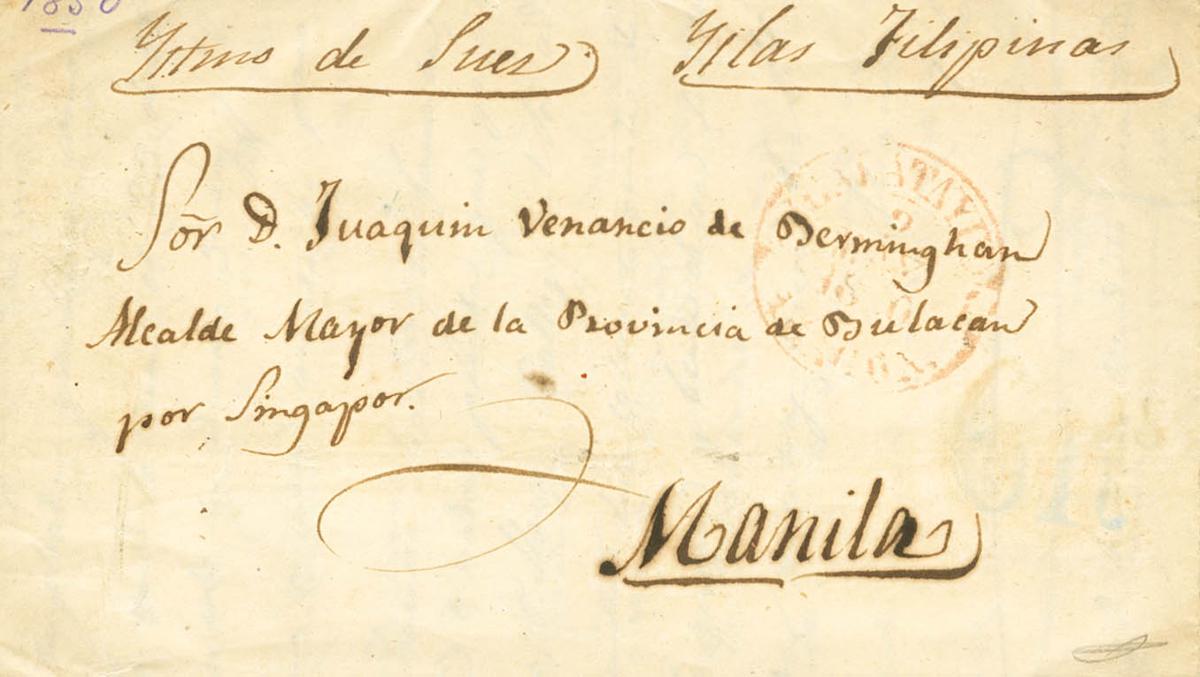 1850
Ystmo de Suez Yslas Filipinas
Sor̃ D. Juaquin Venancio de Berminghan
Alcalde Mayor de la Provincia de Bulacan
por Singapor.
Manila